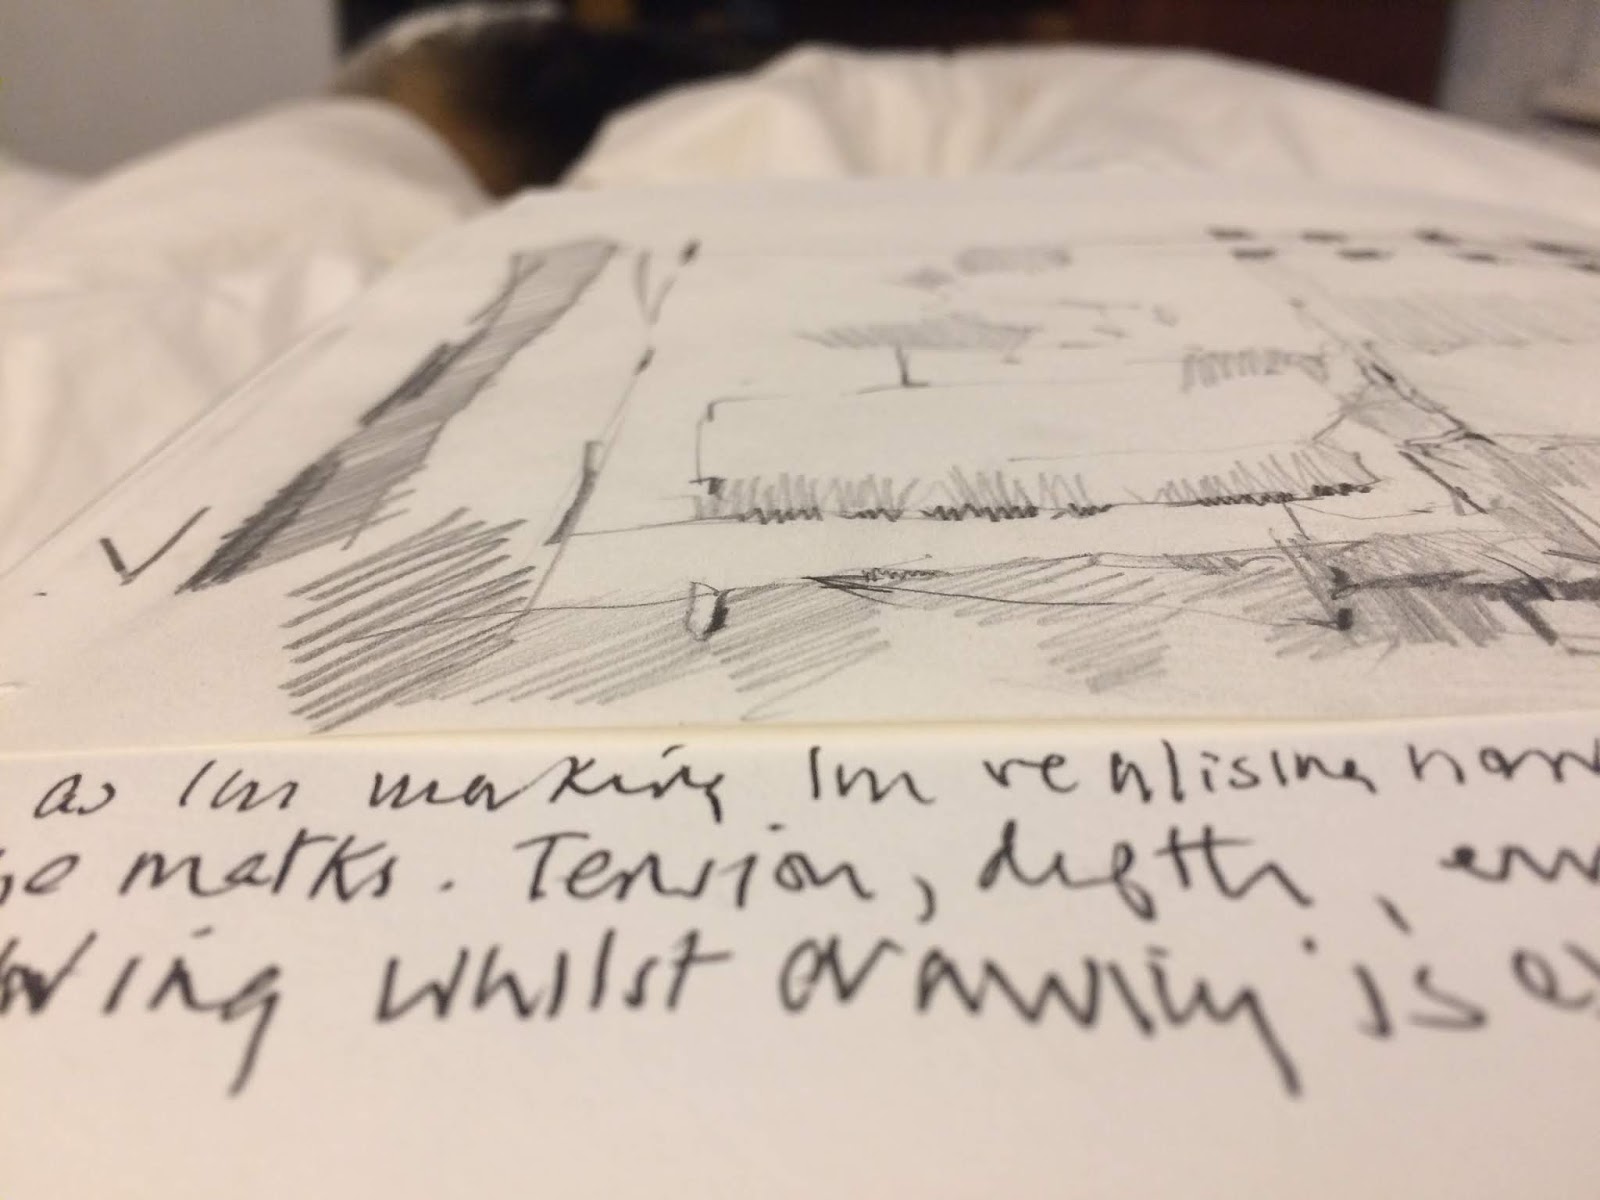 as Im making Im realising
marks. Tension, depth,
whilst drawing is